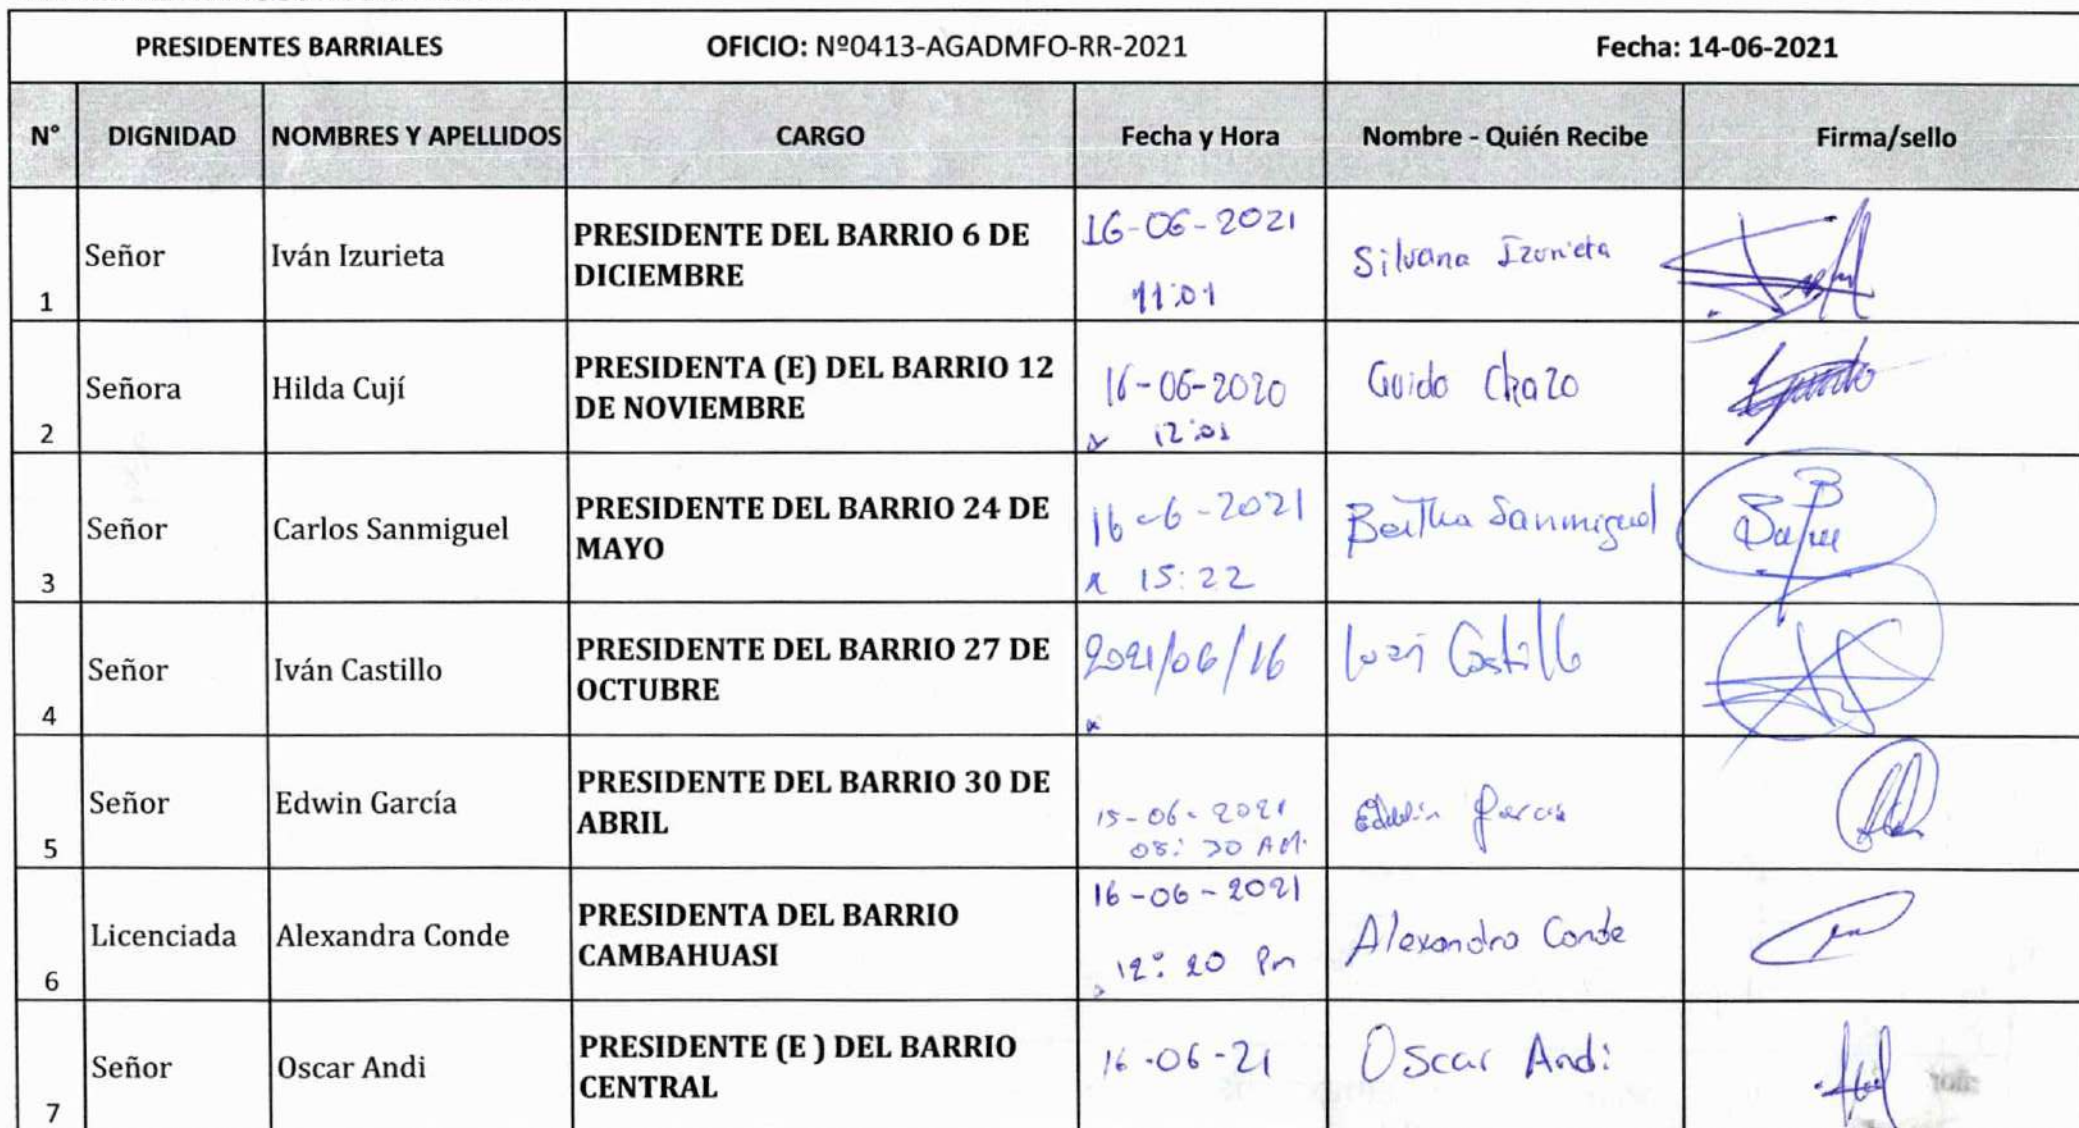 PRESIDENTES BARRIALES OFICIO: Nº0413-AGADMFO-RR-2021 Fecha: 14-06-2021
N° DIGNIDAD NOMBRES Y APELLIDOS CARGO Fecha y Hora Nombre - Quién Recibe Firma/sello
1 Señor Iván Izurieta PRESIDENTE DEL BARRIO 6 DE
DICIEMBRE
16-06-2021
11:01
Silvana Izurieta
2 Señora Hilda Cují PRESIDENTA (E) DEL BARRIO 12
DE NOVIEMBRE
16-06-2020
12:01
Guido Chazo
3 Señor Carlos Sanmiguel PRESIDENTE DEL BARRIO 24 DE
MAYO
16-6-2021
15:22
Bertha Sanmiguel
4 Señor Iván Castillo PRESIDENTE DEL BARRIO 27 DE
OCTUBRE
2021/06/16
Iván Castillo
5 Señor Edwin García PRESIDENTE DEL BARRIO 30 DE
ABRIL
15-06-2021
08:30 AM.
Edwin García
6 Licenciada Alexandra Conde PRESIDENTA DEL BARRIO
CAMBAHUASI
16-06-2021
12:20 Pm
Alexandra Conde
7 Señor Oscar Andi PRESIDENTE (E ) DEL BARRIO
CENTRAL
16-06-21
Oscar Andi